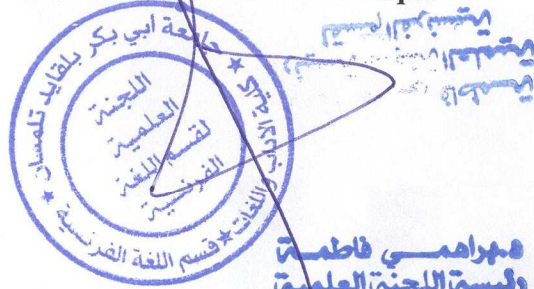 جامعة أبي بكر بلقايد تلمسان ★ كلية الآداب واللغات ★ قسم اللغة الفرنسية ★
اللجنة
العلمية
لقسم اللغة
الفرنسية
لقسم الفرنسية
العلمية
فاطمة
مهراهمي فاطمة
رئيسة اللجنة العلمية